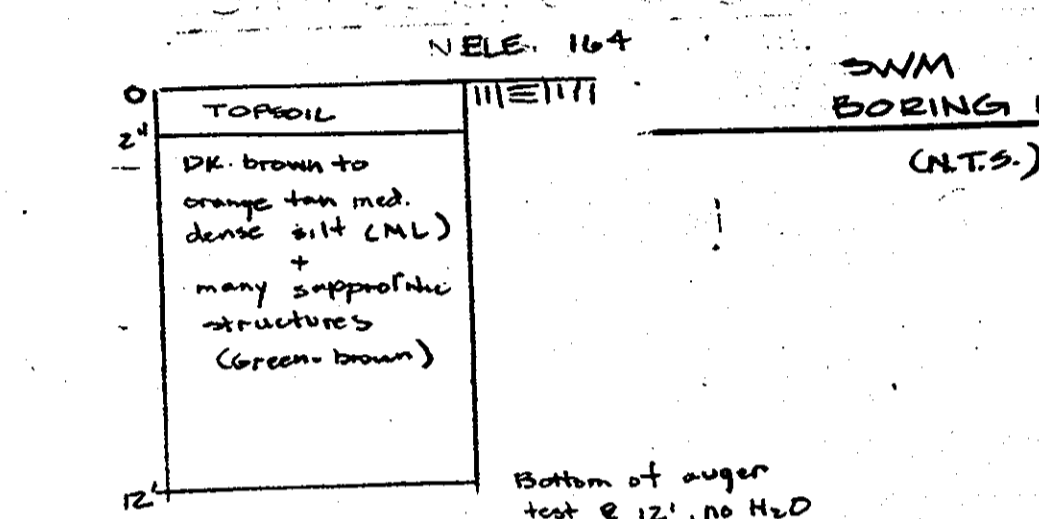 ELE. 164
SWM
BORING
(N.T.S.)
0
TOPSOIL
2"
DK. brown to
orange tan med.
dense silt (ML)
+
many
structures
(Green-brown)
12'
Bottom of auger
test @ 12', no H2O